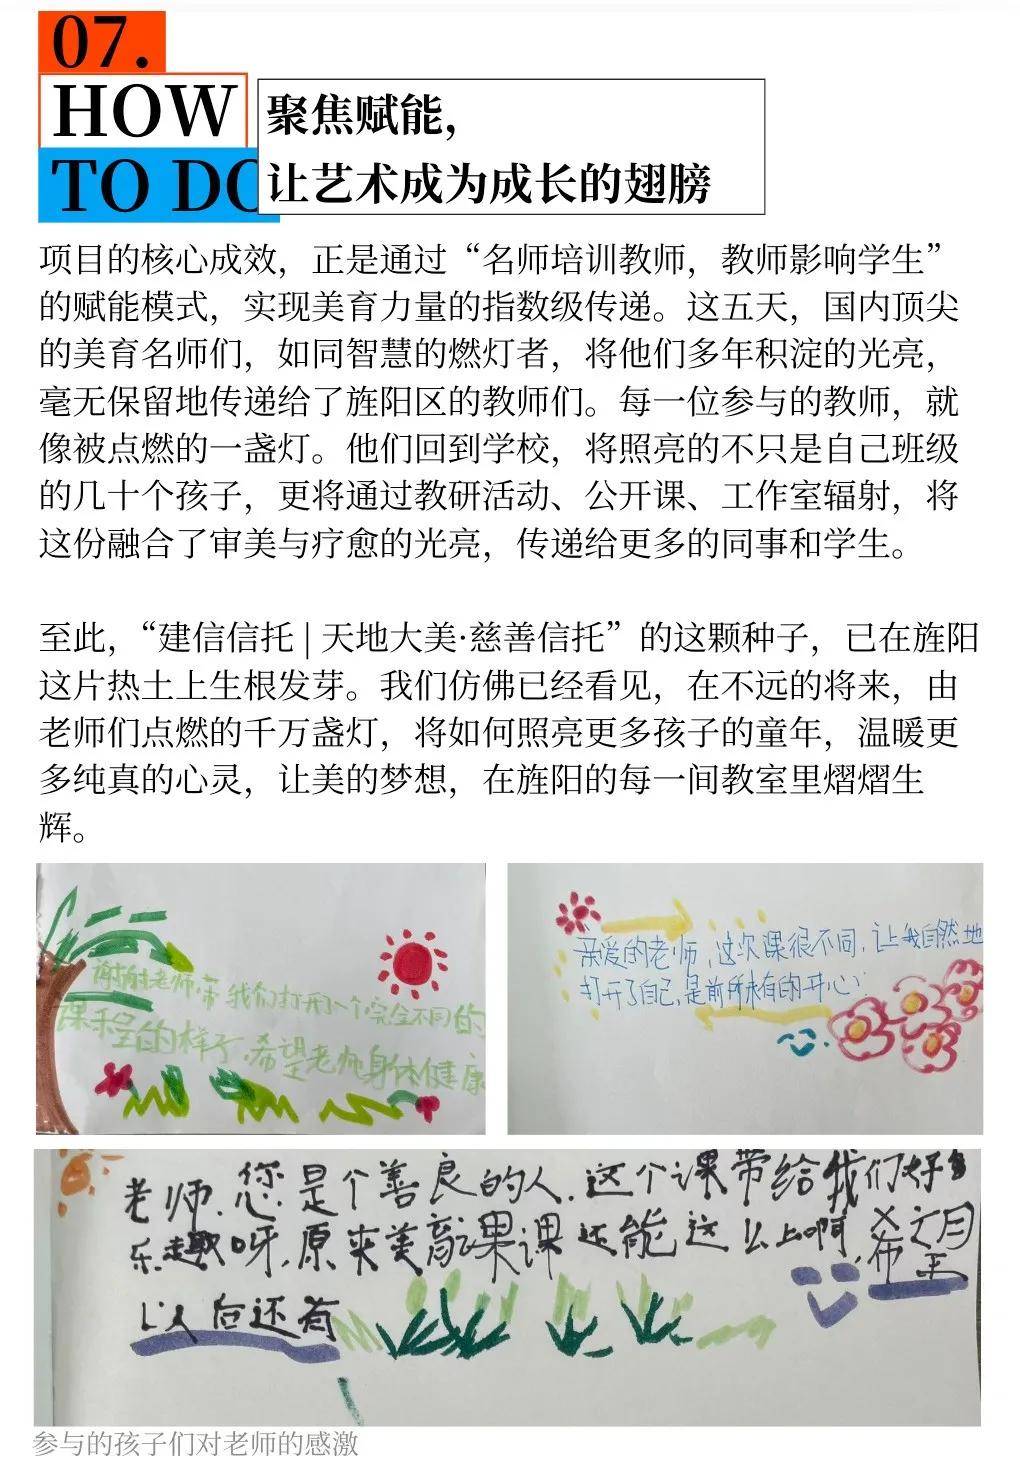 07.
HOW
TO DO
聚焦赋能，
让艺术成为成长的翅膀
项目的核心成效，正是通过“名师培训教师，教师影响学生”
的赋能模式，实现美育力量的指数级传递。这五天，国内顶尖
的美育名师们，如同智慧的燃灯者，将他们多年积淀的光亮，
毫无保留地传递给了旌阳区的教师们。每一位参与的教师，就
像被点燃的一盏灯。他们回到学校，将照亮的不只是自己班级
的几十个孩子，更将通过教研活动、公开课、工作室辐射，将
这份融合了审美与疗愈的光亮，传递给更多的同事和学生。
至此，“建信信托 | 天地大美·慈善信托”的这颗种子，已在旌阳
这片热土上生根发芽。我们仿佛已经看见，在不远的将来，由
老师们点燃的千万盏灯，将如何照亮更多孩子的童年，温暖更
多纯真的心灵，让美的梦想，在旌阳的每一间教室里熠熠生
辉。
谢谢老师，带我们打开了一个完全不同的
课程的样子，希望老师身体健康
亲爱的老师，这次课很不同，让我自然地
打开了自己，是前所未有的开心
老师，您是个善良的人，这个课带给我们好多
乐趣呀，原来美育课课还能这么上啊，希望
以后还有
参与的孩子们对老师的感激